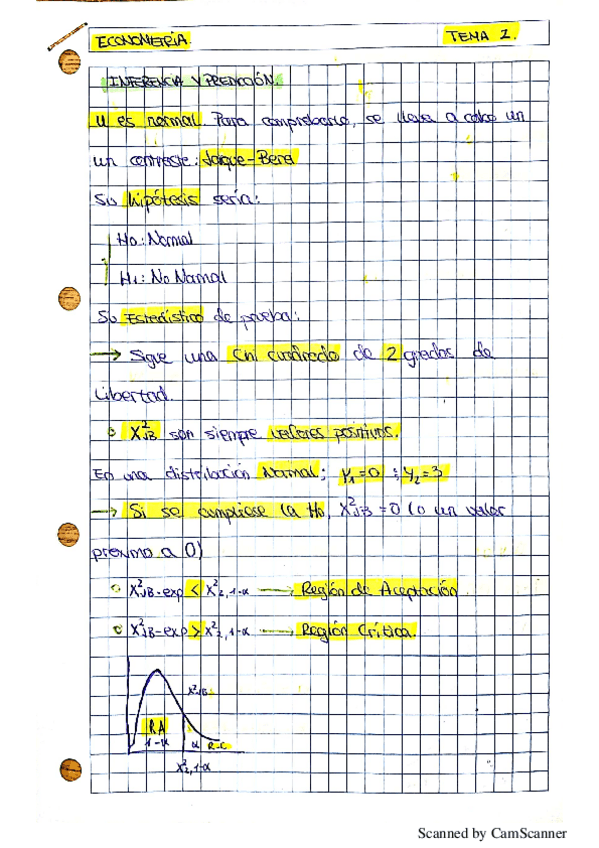 ECONOMETRÍA. TEMA 1.
INFERENCIA Y PREDICCIÓN.
U es normal. Para comprobarlo, se lleva a cabo un
un contraste: Jarque-Bera
Su hipótesis sería:
H0: Normal
H1: No Normal
Su Estadístico de prueba:
→ Sigue una Chi cuadrado de 2 grados de
Libertad.
X²JB son siempre valores positivos.
En una distribución Normal; γ1=0 ; γ2=3
→ Si se cumpliese la H0, X²JB = 0 (o un valor
próximo a 0)
X²JB-exp < X²2,1-α → Región de Aceptación
X²JB-exp > X²2,1-α → Región Crítica.
X²JB
RA
1-α α R.C
X²2,1-α
Scanned by CamScanner